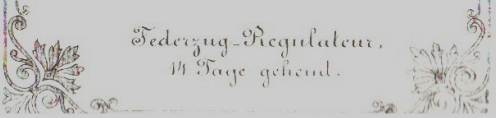 Federzug-Regulateur,
14 Tage gehend.